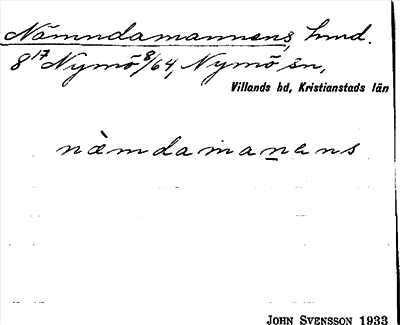 Nämndamannens, hmd.
8¹⁷ Nymö ⁸/64, Nymö sn,
Villands hd, Kristianstads län
næmdamanens
JOHN SVENSSON 1933